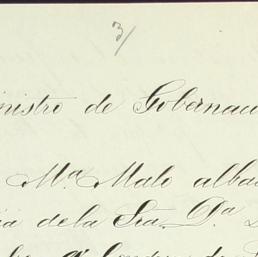 3/
nistro de Gobernac
Mª. Malo alba
ia dela Sra. Dª